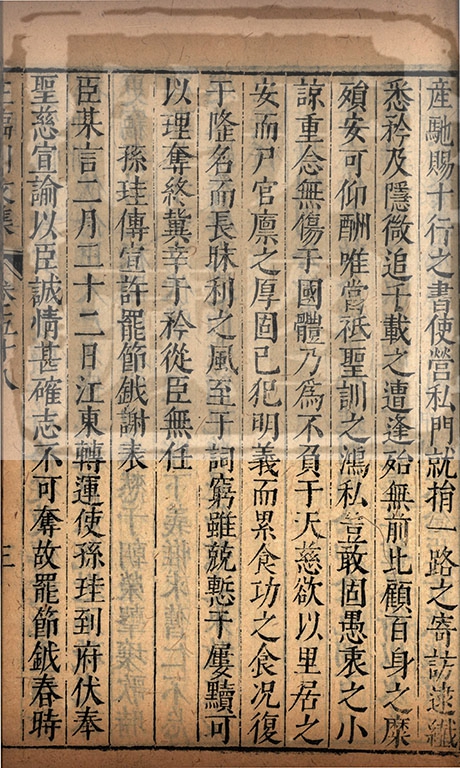 産馳賜十行之書使營私門就捐一路之寄訪逮纖
悉矜及隱微追千載之遭逢殆無前比顧百身之糜
殞安可仰酬唯當祗聖訓之鴻私豈敢固愚衷之小
諒重念無傷于國體乃為不負于天慈欲以里居之
安而尸官廪之厚固已犯明義而累食功之食况復
于隆名而長昧利之風至于詞窮雖兢慙于屢黷可
以理奪終冀幸于矜從臣無任
孫珪傳宣許罷節鉞謝表
臣某言二月二十二日江東轉運使孫珪到府伏奉
聖慈宣諭以臣誠情甚確志不可奪故罷節鉞春時
王臨川文集
卷五十八
三